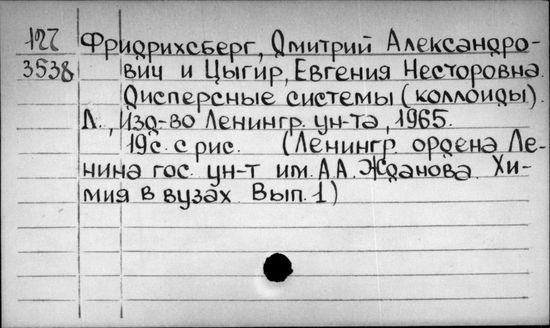 127 Фридрихсберг, Дмитрий Александро-
3538 вич и Цыгир, Евгения Несторовна.
Дисперсные системы (коллоиды).
Л., Изд-во Ленингр. ун-та, 1965.
19с. с рис. (Ленингр. ордена Ле-
нина гос. ун-т им. А.А. Жданова. Хи-
мия в вузах. Вып. 1)